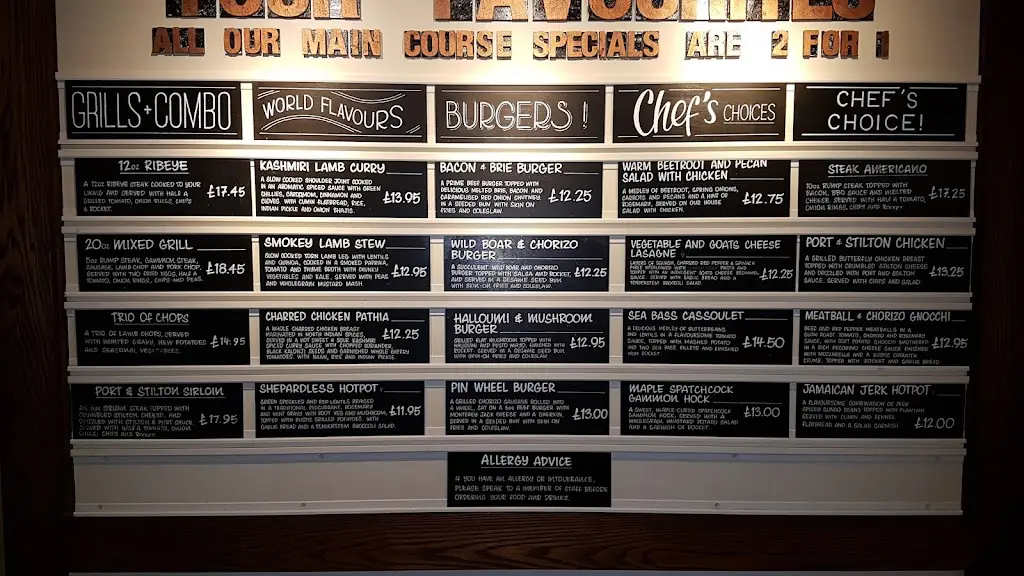 YOUR FAVOURITES
ALL OUR MAIN COURSE SPECIALS ARE 2 FOR 1
GRILLS + COMBO
WORLD FLAVOURS
BURGERS !
Chef's CHOICES
CHEF'S
CHOICE!
12oz RIBEYE
A 12oz RIBEYE STEAK COOKED TO YOUR
LIKING AND SERVED WITH HALF A
GRILLED TOMATO, ONION RINGS, CHIPS
& ROCKET.
£17.45
KASHMIRI LAMB CURRY
A SLOW COOKED SHOULDER JOINT COOKED
IN AN AROMATIC SPICED SAUCE WITH GREEN
CHILLIES, CARDAMOM, CINNAMON AND
CLOVES. WITH CUMIN FLATBREAD, RICE,
INDIAN PICKLE AND ONION BHAJIS.
£13.95
BACON & BRIE BURGER
A PRIME BEEF BURGER TOPPED WITH
DELICIOUS MELTED BRIE, BACON AND
CARAMELISED RED ONION CHUTNEY.
IN A SEEDED BUN WITH SKIN ON
FRIES AND COLESLAW.
£12.25
WARM BEETROOT AND PECAN
SALAD WITH CHICKEN
A MEDLEY OF BEETROOT, SPRING ONIONS,
CARROTS AND PECANS AND A HINT OF
ROSEMARY, SERVED ON OUR HOUSE
SALAD WITH CHICKEN.
£12.75
STEAK AMERICANO
10oz RUMP STEAK, TOPPED WITH
BACON, BBQ SAUCE AND MELTED
CHEESE. SERVED WITH HALF A TOMATO,
ONION RINGS, CHIPS AND ROCKET
£17.25
20oz MIXED GRILL
5oz RUMP STEAK, GAMMON STEAK,
SAUSAGE, LAMB CHOP AND PORK CHOP,
SERVED WITH TWO FRIED EGGS, HALF A
TOMATO, ONION RINGS, CHIPS AND PEAS.
£18.45
SMOKEY LAMB STEW
SLOW COOKED TORN LAMB LEG WITH LENTILS
AND QUINOA, COOKED IN A SMOKED PAPRIKA,
TOMATO AND THYME BROTH WITH CHUNKY
VEGETABLES AND KALE. SERVED WITH PEAS
AND WHOLEGRAIN MUSTARD MASH
£12.95
WILD BOAR & CHORIZO
BURGER
A SUCCULENT WILD BOAR AND CHORIZO
BURGER TOPPED WITH SALSA AND ROCKET,
SERVED IN A SESAME SEED BUN
WITH SKIN-ON FRIES AND COLESLAW.
£12.25
VEGETABLE AND GOATS CHEESE
LASAGNE
LAYERS OF SQUASH, CHARRED RED PEPPER & SPINACH
PASTA AND
TOPPED WITH AN INDULGENT GOATS CHEESE BECHAMEL
SAUCE. SERVED WITH GARLIC BREAD AND A
TENDERSTEM BROCCOLI SALAD.
£12.25
PORT & STILTON CHICKEN
A GRILLED BUTTERFLY CHICKEN BREAST
TOPPED WITH CRUMBLED STILTON CHEESE
AND DRIZZLED WITH PORT AND STILTON
SAUCE. SERVED WITH CHIPS AND SALAD
£13.25
TRIO OF CHOPS
A TRIO OF LAMB CHOPS, SERVED
WITH GRAVY, NEW POTATOES
AND SEASONAL VEGETABLES.
£14.95
CHARRED CHICKEN PATHIA
A WHOLE CHARRED CHICKEN BREAST
MARINATED IN NORTH INDIAN SPICES,
SERVED IN A HOT SWEET & SOUR KASHMIRI
SPICED CURRY SAUCE WITH CHOPPED CORIANDER,
BLACK KALONJI SEEDS AND GARNISHED WHOLE CHERRY
TOMATOES. WITH NAAN, RICE AND INDIAN PICKLE.
£12.25
HALLOUMI & MUSHROOM
BURGER
GRILLED FLAT MUSHROOM TOPPED WITH
HALLOUMI AND PESTO MAYO, GARNISHED WITH
ROCKET. SERVED IN A SESAME SEED BUN
WITH SKIN-ON FRIES AND COLESLAW.
£12.95
SEA BASS CASSOULET
A DELICIOUS MEDLEY OF BUTTERBEANS
AND LENTILS IN A FLAVOURSOME TOMATO
SAUCE, TOPPED WITH MASHED POTATO
AND TWO SEA BASS FILLETS AND FINISHED
WITH ROCKET.
£14.50
MEATBALL & CHORIZO GNOCCHI
BEEF AND RED PEPPER MEATBALLS IN A
SLOW ROAST TOMATO, CHORIZO AND ROSEMARY
SAUCE, WITH SOFT POTATO GNOCCHI SMOTHERED
IN A RICH PECORINO CHEESE SAUCE AND FINISHED
WITH MOZZARELLA AND A RUSTIC CIABATTA
CRUMB. TOPPED WITH ROCKET AND GARLIC BREAD.
£12.95
PORT & STILTON SIRLOIN
AN 8oz SIRLOIN STEAK TOPPED WITH
CRUMBLED STILTON CHEESE, AND
DRIZZLED WITH STILTON & PORT SAUCE.
SERVED WITH HALF A TOMATO, ONION
RINGS, CHIPS AND ROCKET
£17.95
SHEPARDLESS HOTPOT V
GREEN SPECKLED AND RED LENTILS BRAISED
IN A TRADITIONAL REDCURRANT, ROSEMARY
AND MINT GRAVY WITH ROOT VEG AND MUSHROOM,
TOPPED WITH RUSTIC GRILLED POTATOES, WITH
GARLIC BREAD AND A TENDERSTEM BROCCOLI SALAD.
£11.95
PIN WHEEL BURGER
A GRILLED CHORIZO SAUSAGE ROLLED INTO
A WHEEL, SAT ON A 6oz BEEF BURGER WITH
MONTEREY JACK CHEESE AND A GHERKIN.
SERVED IN A SEEDED BUN WITH SKIN ON
FRIES AND COLESLAW.
£13.00
MAPLE SPATCHCOCK
GAMMON HOCK
A SWEET, MAPLE-CURED SPATCHCOCK
GAMMON HOCK, SERVED WITH A
WHOLEGRAIN MUSTARD POTATO SALAD
AND A GARNISH OF ROCKET.
£13.00
JAMAICAN JERK HOTPOT V
A FLAVOURSOME COMBINATION OF JERK
SPICED CUMIN BEANS TOPPED WITH PLANTAIN,
SERVED WITH CUMIN AND FENNEL
FLATBREAD AND A SALAD GARNISH
£12.00
ALLERGY ADVICE
IF YOU HAVE AN ALLERGY OR INTOLERANCE,
PLEASE SPEAK TO A MEMBER OF STAFF BEFORE
ORDERING YOUR FOOD AND DRINKS.